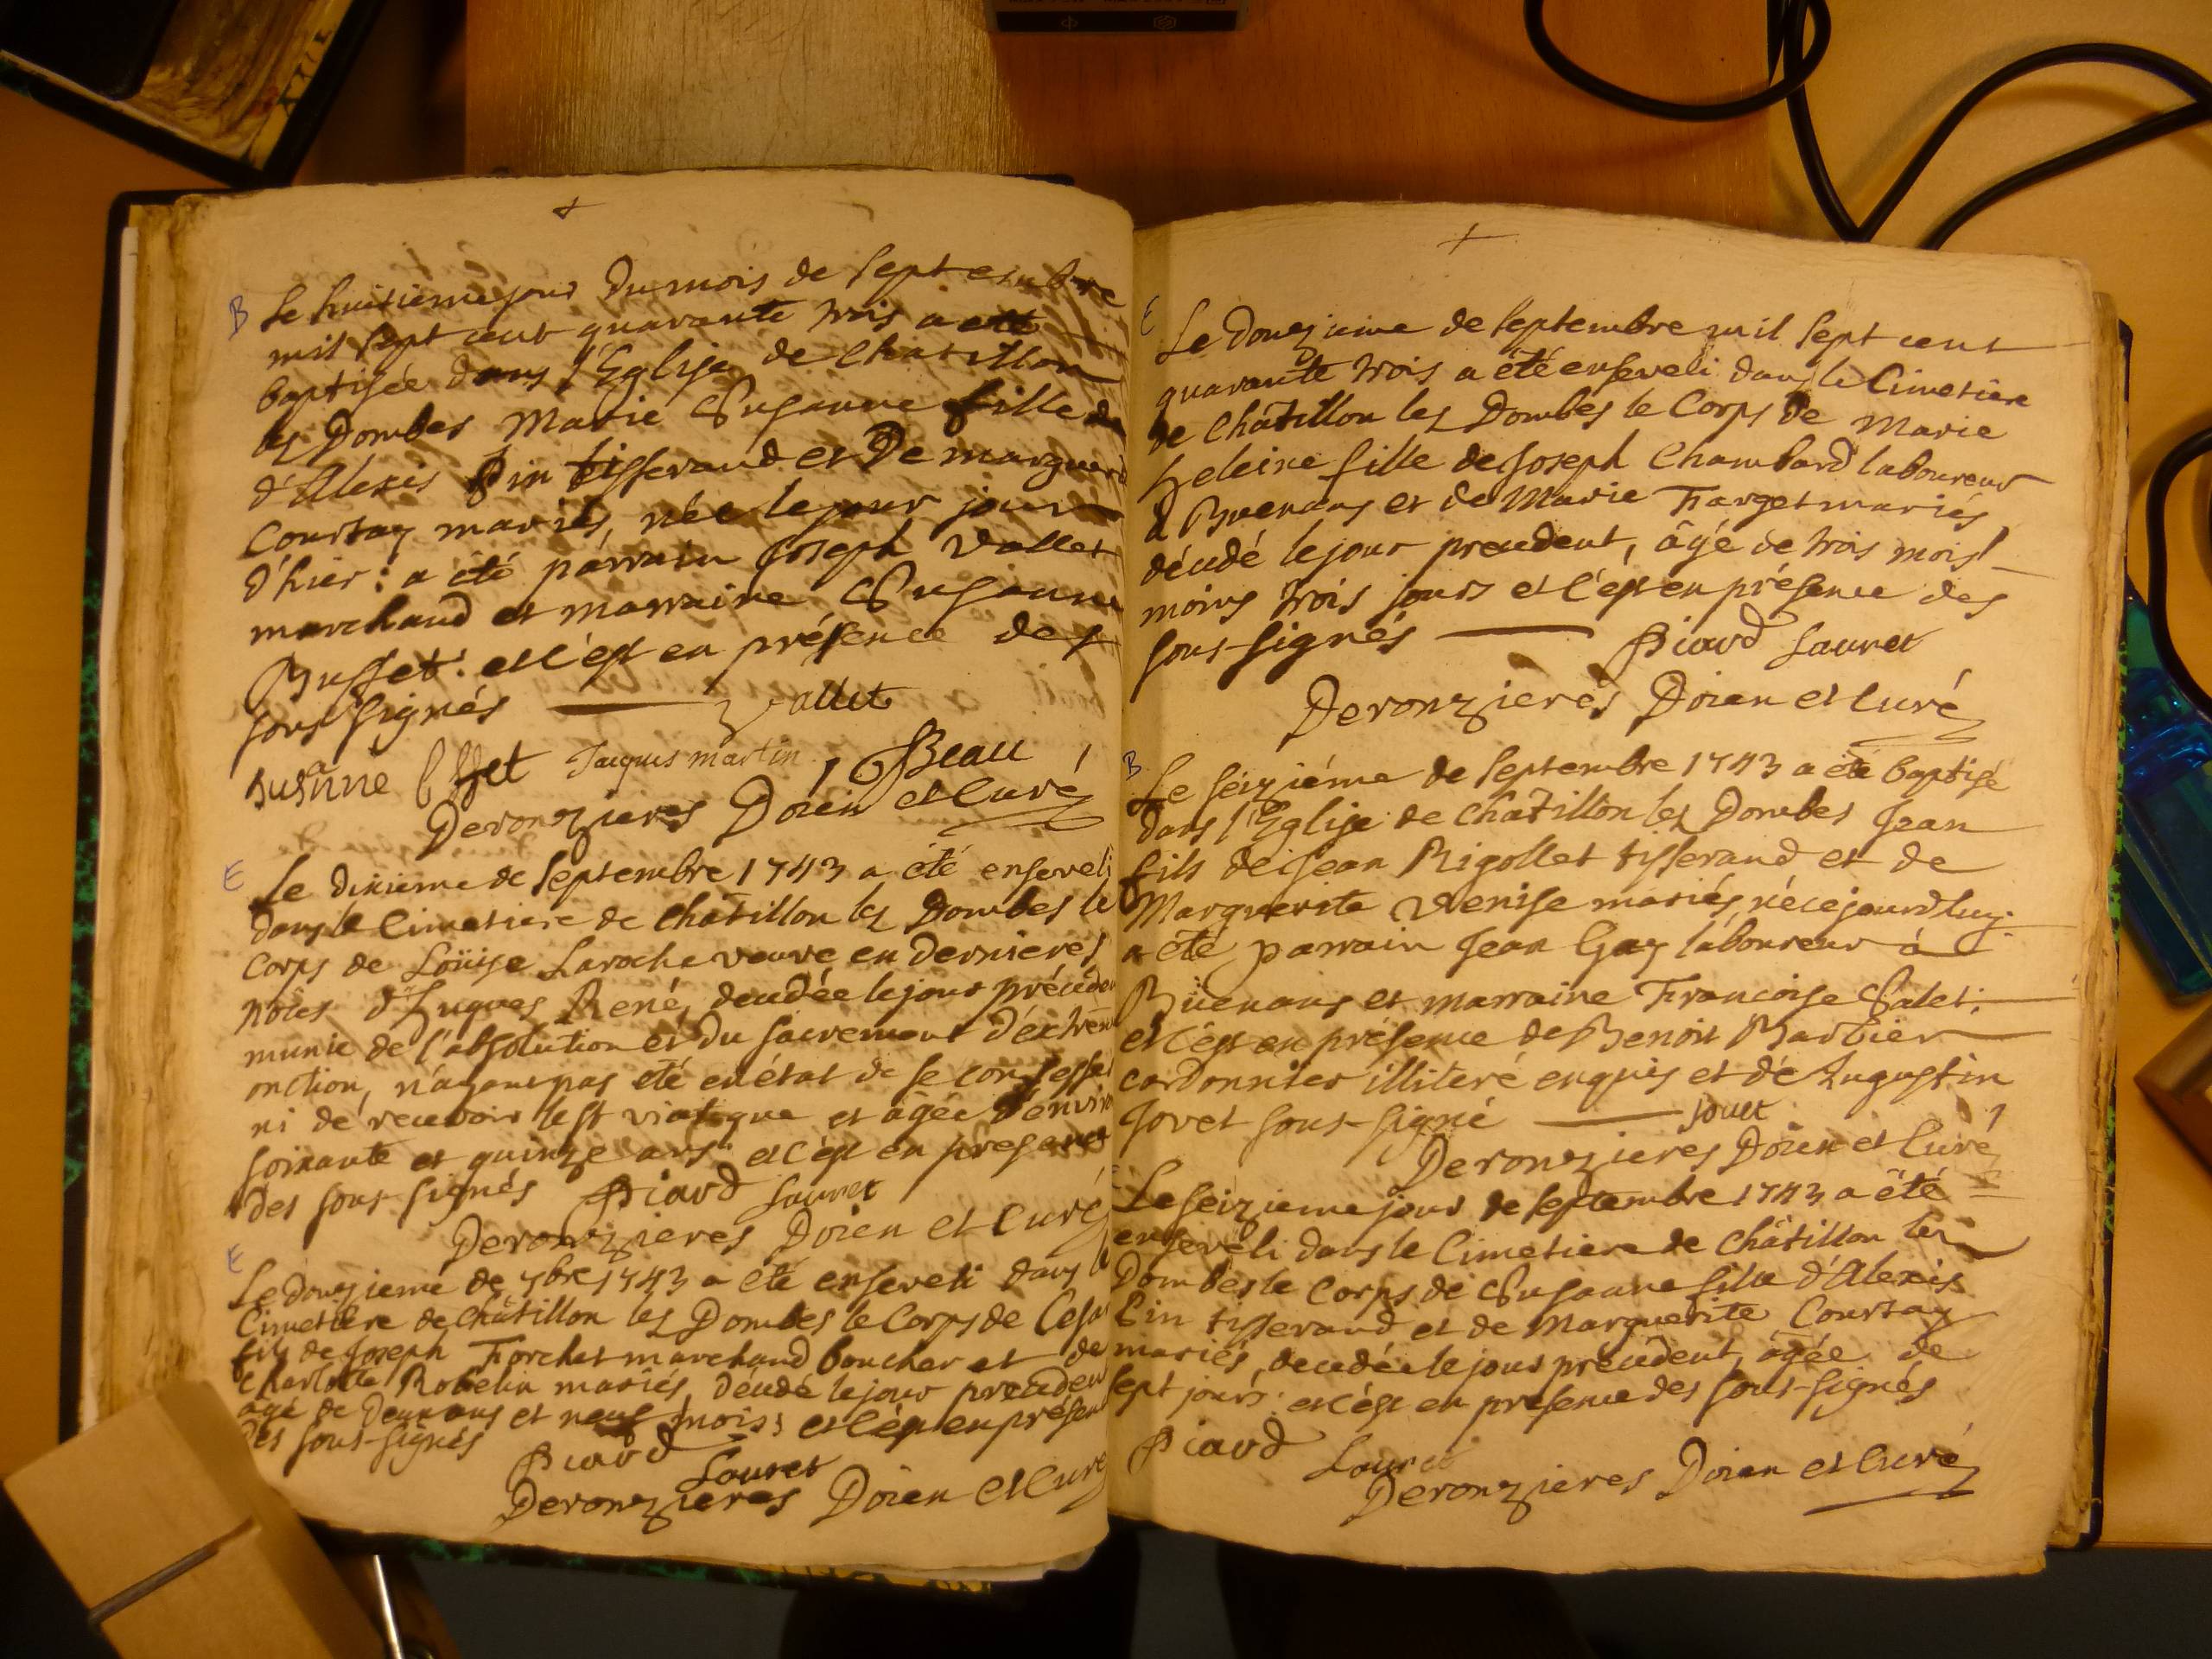 B
Le huitieme jour du mois de septembre
mil sept cent quarante trois a eté
baptisée dans l'Eglise de Chatillon
les Dombes Marie Susanne fille de
d'Alexis Pin tisserand et De marguerit
Courtay mariés, née le jour jour
d'hier: a été parrain Joseph Vallet
marchand et marraine Susanne
Buffet: et c'est en présence des
sous signés Vallet
susanne Jaques martin Beau
Deronzieres Doien et Curé
E
Le dixieme de septembre 1743 a été enseveli
dans le Cimetiere de Châtillon les Dombes le
Corps de Loüise Laroche veuve en dernieres
nôces d'hugues René, decedée le jour préceden
munie de l'absolution et du sacrement d'extrem
onction, n'ayant pas été en état de se confesser
ni de recevoir le st viatique et âgée d'enviro
soixante et quinze ans: et c'est en presence
des sous-signés Picard Lauret
Deronzieres Doien et Curé
E
Le douzieme de 7bre 1743 a été enseveli dans le
Cimetiere de Châtillon les Dombes le Corps de Cesar
fils de Joseph Forchet marchand boucher et de
Charlotte Robelin mariés, décédé le jour preceden
agé de Deux ans et neuf mois: et c'est en présen
des sous-signés Picard
Lauret
Deronzieres Doien et Curé
E
Le douzieme de septembre mil sept cent
quarante trois a été enseveli dans le Cimetiere
de Châtillon les Dombes le Corps de Marie
heleine fille de Joseph Chambard laboureur
à Buenans et de Marie Farget mariés
décédé le jour precedent, âgé de trois mois
moins trois jours et c'est en présence des
sous-signés Picard Lauret
Deronzieres Doien et Curé
B
Le seizième de septembre 1743 a été baptisé
dans l'Eglise de Châtillon les Dombes Jean
fils de Jean Rigollet tisserand et de
Marguerite Venise mariés, né cejourdhuy:
a été parrain Jean Gay laboureur à
Büenans et marraine Francoise Salet:
et c'est en présence de Benoit Barbier
cordonnier illiteré enquis et de Augustin
Jovet sous-signé Jouet
Deronzieres Doien et Curé
Le seizieme jour de septembre 1743 a été
enseveli dans le Cimetiere de Châtillon les
Dombes le Corps de Susanne fille d'Alexis
Pin tisserand et de Marguerite Courtay
mariés, decedée le jour précédent, âgée de
sept jours: et c'est en presence des sous-signés
Picard Lauret
Deronzieres Doien et Curé